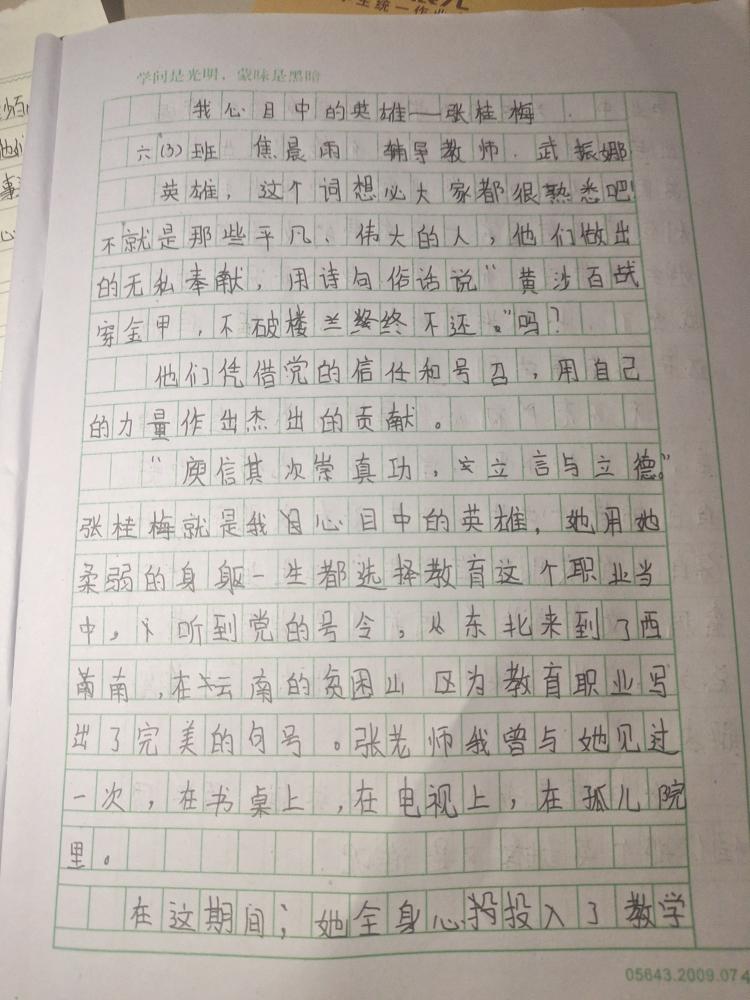 生统一作业
学问是光明，蒙昧是黑暗
我心目中的英雄——张桂梅
六(3)班 焦晨雨 辅导教师．武振娜
英雄，这个词想必大家都很熟悉吧！
不就是那些平凡、伟大的人，他们做出
的无私奉献，用诗句俗话说“黄沙百战
穿金甲，不破楼兰终不还。”吗？
他们凭借党的信任和号召，用自己
的力量作出杰出的贡献。
“庾信其次崇真功，立言与立德。”
张桂梅就是我心目中的英雄，她用她
柔弱的身躯一生都选择教育这个职业当
中。听到党的号令，从东北来到了西
南，在云南的贫困山区为教育职业写
出了完美的句号。张老师我曾与她见过
一次，在书桌上，在电视上，在孤儿院
里。
在这期间；她全身心投入了教学
05643.2009.074